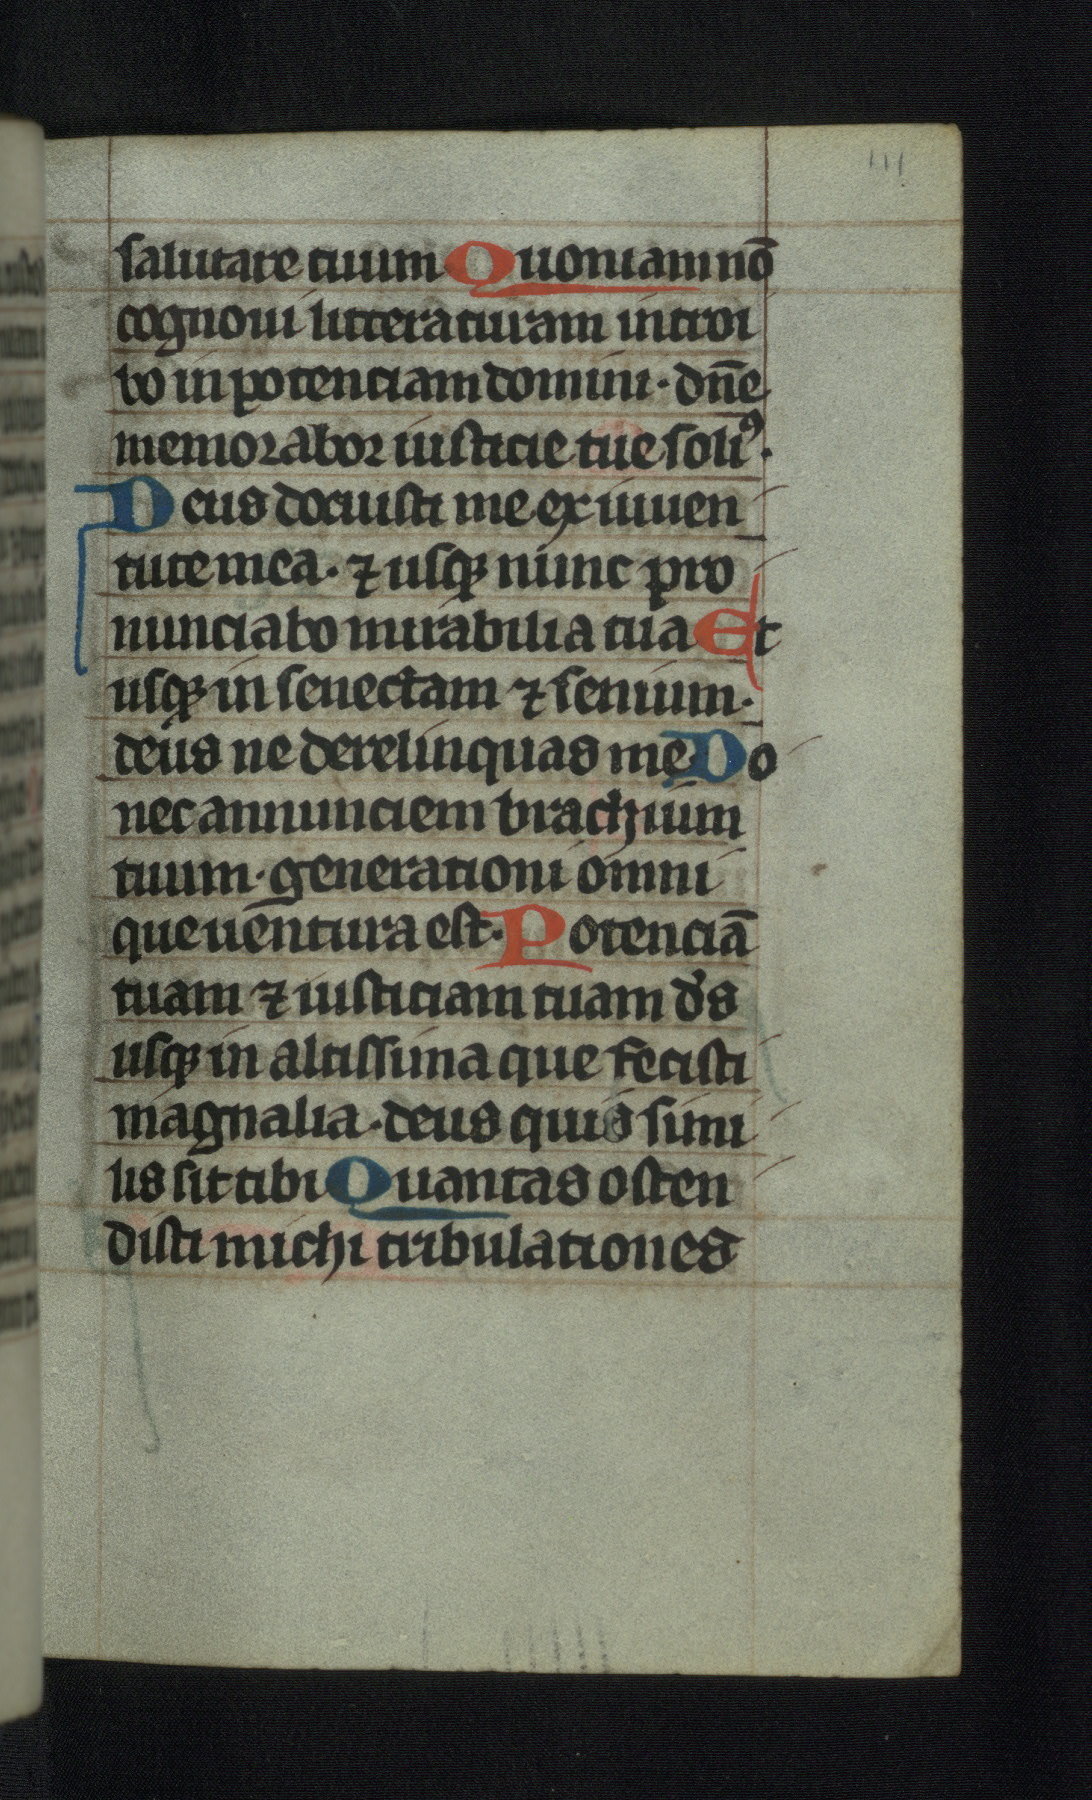 111
salutare tuum Quoniam nō
cognoui litteraturam introi
bo in potenciam domini · dn̄e
memorabor iusticie tue soliꝰ.
Deus docuisti me ex iuuen
tute mea · ⁊ usqꝫ nunc pro
nunciabo mirabilia tua Et
usqꝫ in senectam ⁊ senium ·
deus ne derelinquas me Do
nec annunciem brachium
tuum · generationi omni
que uentura est · Potenciā
tuam ⁊ iusticiam tuam d̓s
usqꝫ in altissima que fecisti
magnalia · deus quis simi
lis sit tibi Quantas osten
disti michi tribulationes